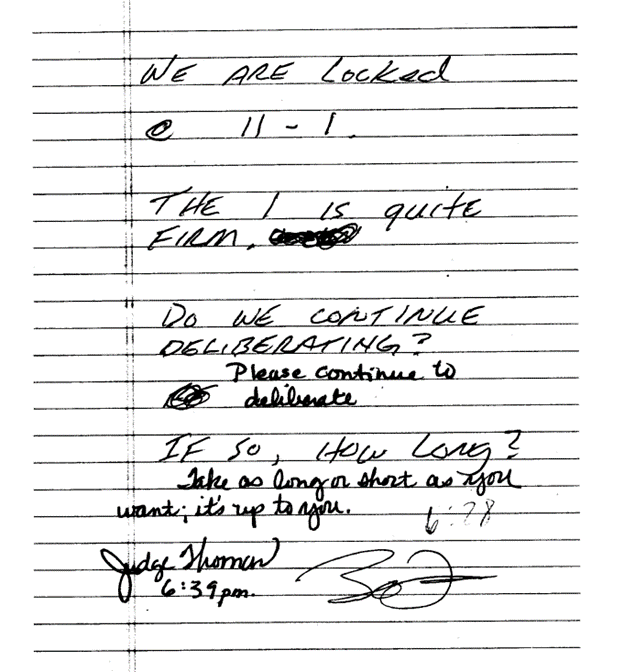 WE ARE Locked
@ 11 - 1.
THE 1 IS quite
FIRM.
DO WE CONTINUE
DELIBERATING?
Please continue to
deliberate
IF SO, HOW LONG?
Take as long or short as you
want; it's up to you.
6:28
Judge Thoman
6:39pm.